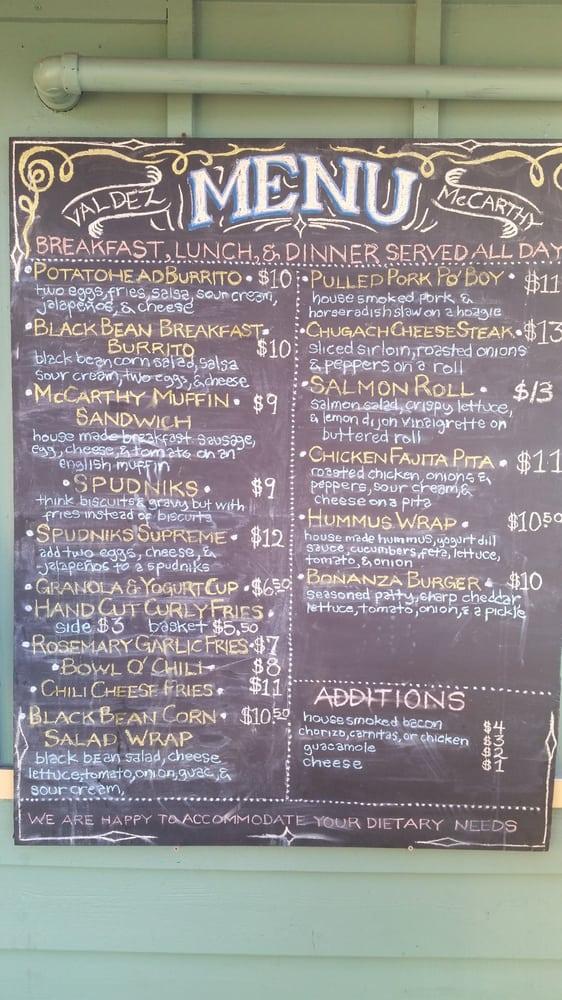 VALDEZ MENU McCARTHY
BREAKFAST, LUNCH, & DINNER SERVED ALL DAY
• POTATOHEAD BURRITO • $10
two eggs, fries, salsa, sour cream,
jalapeños, & cheese
• BLACK BEAN BREAKFAST
BURRITO • $10
black bean corn salad, salsa
sour cream, two eggs, & cheese
• McCARTHY MUFFIN • $9
SANDWICH
house made breakfast sausage,
egg, cheese, & tomato on an
english muffin
• SPUDNIKS • $9
think biscuits & gravy but with
fries instead of biscuits
• SPUDNIKS SUPREME • $12
add two eggs, cheese, &
jalapeños to a spudniks
• GRANOLA & YOGURT CUP • $6.50
• HAND CUT CURLY FRIES •
side $3 basket $5,50
• ROSEMARY GARLIC FRIES • $7
• BOWL O' CHILI • $8
• CHILI CHEESE FRIES • $11
• BLACK BEAN CORN • $10.50
SALAD WRAP
black bean salad, cheese
lettuce, tomato, onion, guac, &
sour cream,
• PULLED PORK PO' BOY • $11
house smoked pork &
horseradish slaw on a hoagie
• CHUGACH CHEESE STEAK • $13
sliced sirloin, roasted onions
& peppers on a roll
• SALMON ROLL • $13
salmon salad, crispy lettuce,
& lemon dijon vinaigrette on
buttered roll
• CHICKEN FAJITA PITA • $11
roasted chicken, onions &
peppers, sour cream, &
cheese on a pita
• HUMMUS WRAP • $10.50
house made hummus, yogurt dill
sauce, cucumbers, feta, lettuce,
tomato, & onion
• BONANZA BURGER • $10
seasoned patty, sharp cheddar
lettuce, tomato, onion, & a pickle
ADDITIONS
house smoked bacon $4
chorizo, carnitas, or chicken $3
guacamole $2
cheese $1
WE ARE HAPPY TO ACCOMMODATE YOUR DIETARY NEEDS